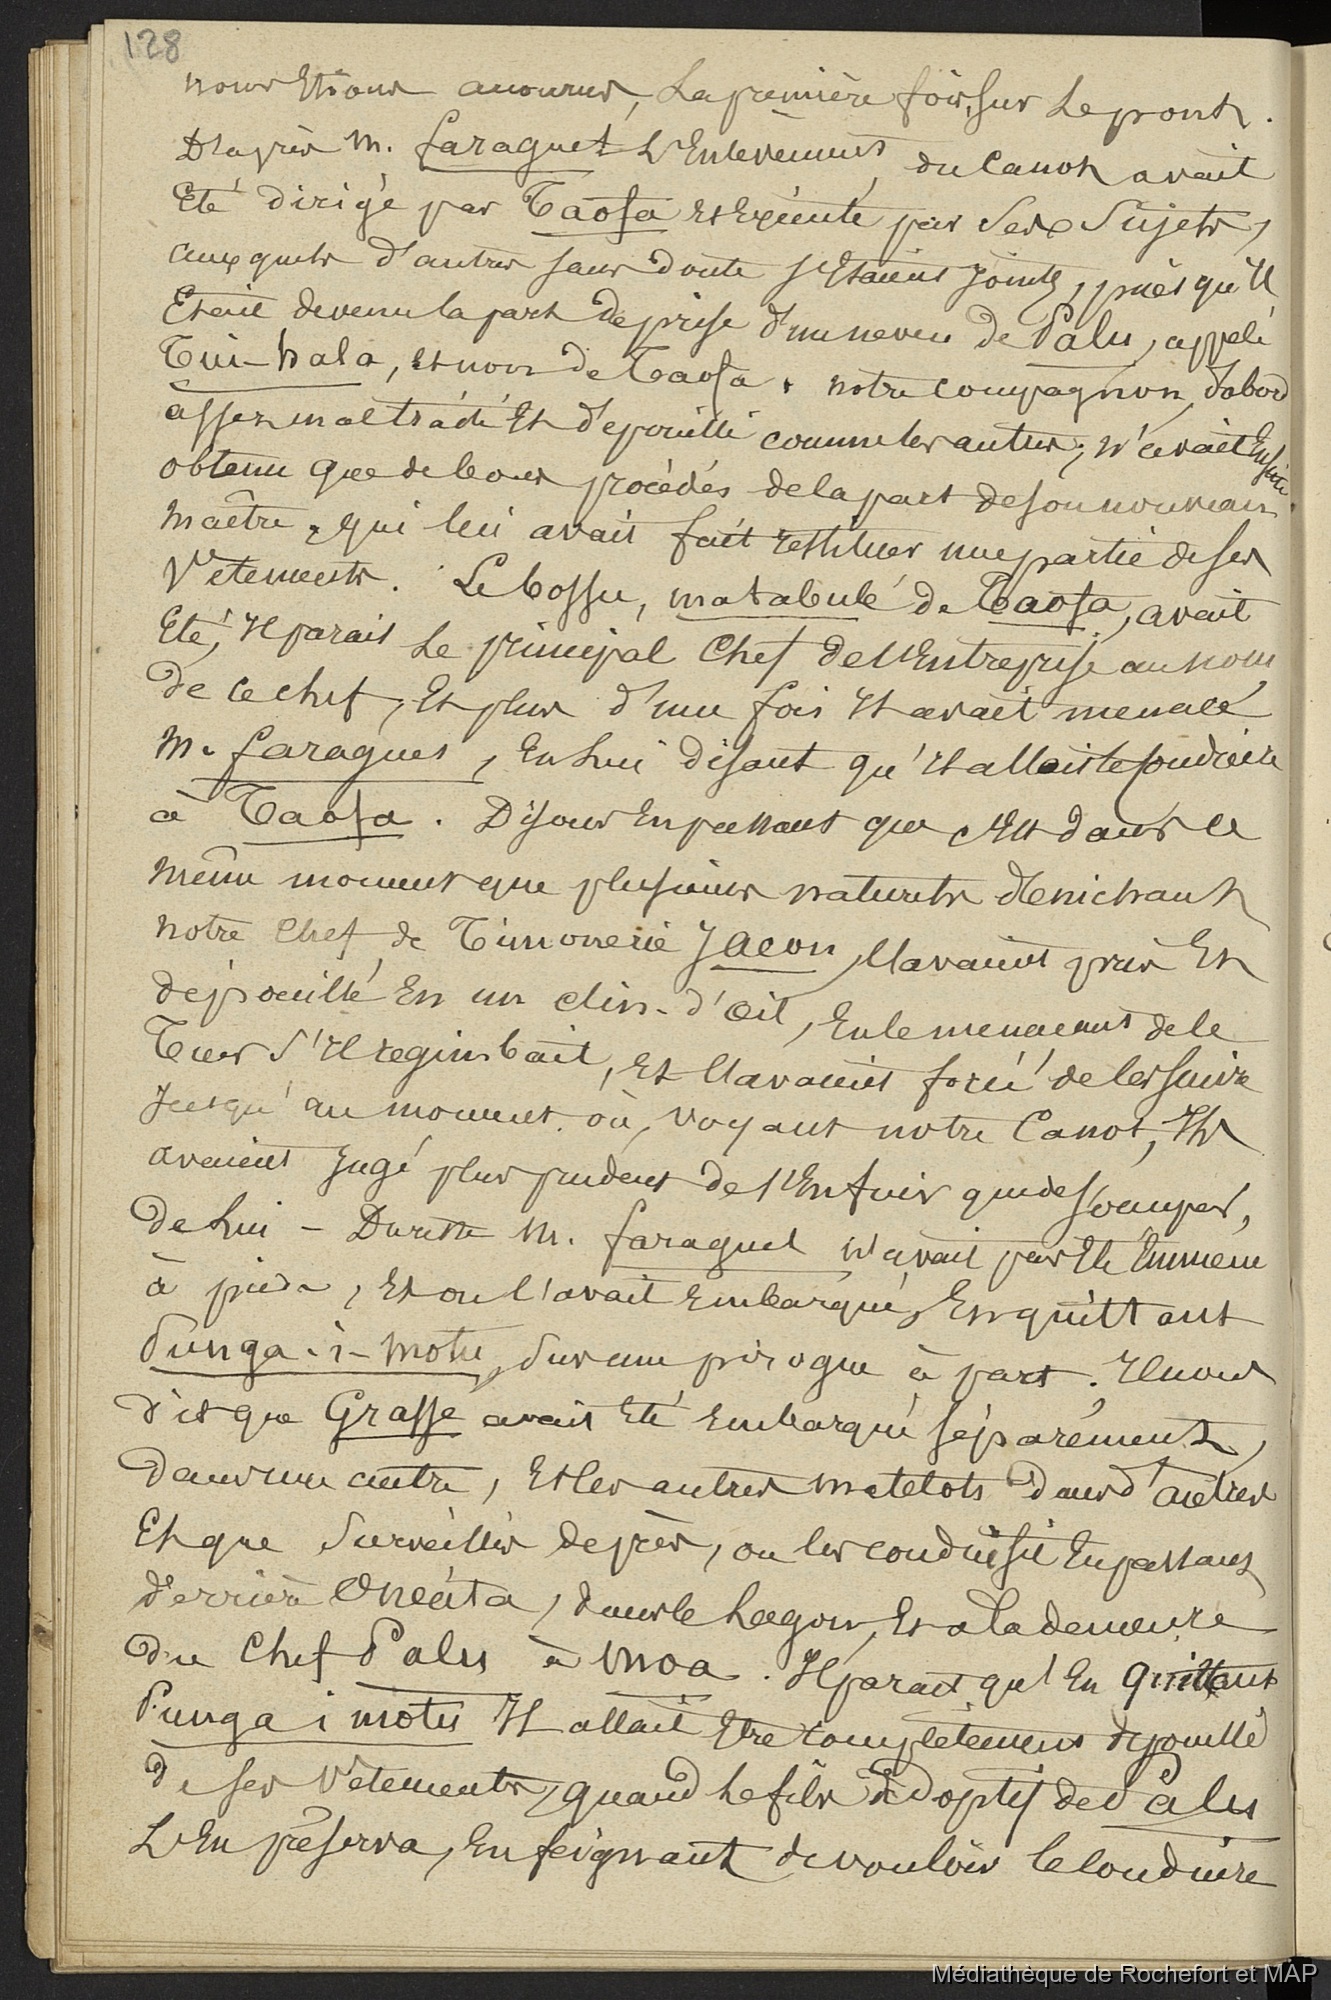 128
nous étions accourus, la première fois, sur le pont.
D'après M. faraguet l'Enlèvement du canot avait
Eté dirigé par Taofa et Exécuté par ses sujets,
auxquels d'autres sans doute s'Etaient joints, puis qu'il
Etait devenu la part de prise d'un neveu de Palu, appelé
Tui-hala, et non de Taofa. notre compagnon, d'abord
assez maltraité Et dépouillé comme les autres, n'avait Ensuite
obtenu que de bons procédés de la part de son nouveau
maître, qui lui avait fait restituer une partie de ses
Vetements. Le bossu, matabulé de Taofa, avait
Eté, Il parait le principal Chef de l'Entreprise au nom
de ce chef, Et plus d'une fois Il avait menacé
M. faraguet, En lui disant qu'Il allait le conduire
à Taofa. Disons En passant que c'Est dans ce
même moment que plusieurs naturels dénichant
notre Chef de Timonerie Jacon, l'avaient pris Et
dépouillé En un clin-d'œil, En le menaçant de le
Tuer s'Il regimbait, Et l'avaient forcé de les suivre
Jusqu'au moment où, voyant notre Canot, Ils
avaient Jugé plus prudent de s'Enfuir que de s'occuper
de lui - Du reste M. faraguet n'avait pas Eté Emmené
à pieds, Et on l'avait Embarqué, En quittant
Punga-i-motu, sur une pirogue à part. Il nous
dit que Grasse avait Eté Embarqué séparément,
dans une autre, Et les autres matelots dans d'autres
Et que surveillés de près, on les conduisit En passant
derrière Onéata, dans le Lagon, Et à la demeure
du Chef Palu à Moa. Il parait qu'En quittant
Punga i motu Il allait Etre complètement dépouillé
de ses Vêtements, quand le fils adoptif de Palu
L'En préserva, En feignant de vouloir le conduire
Médiathèque de Rochefort et MAP